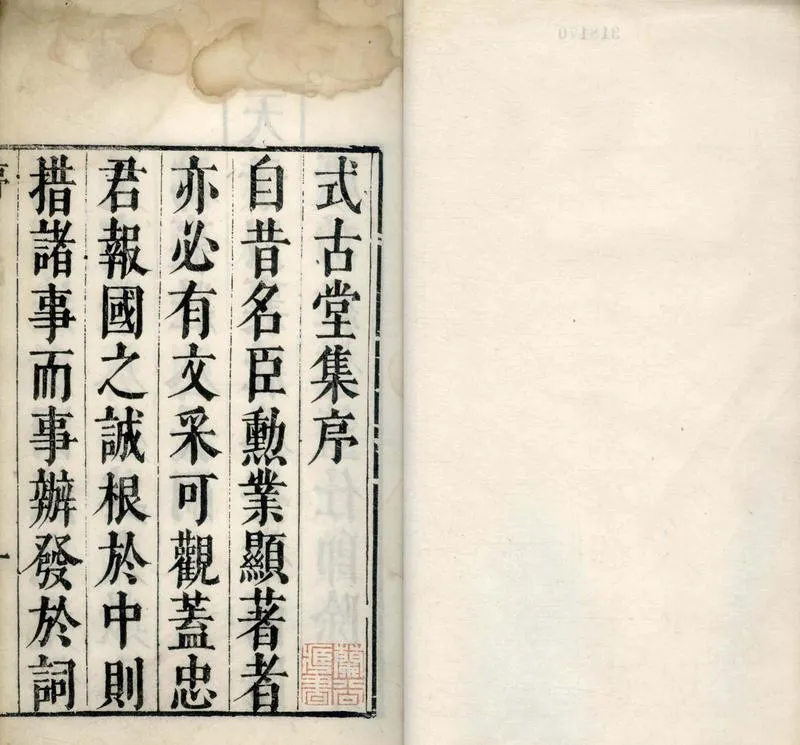 式古堂集序
自昔名臣勳業顯著者
亦必有文采可觀蓋忠
君報國之誠根於中則
措諸事而事辦發於詞
序
一
318170